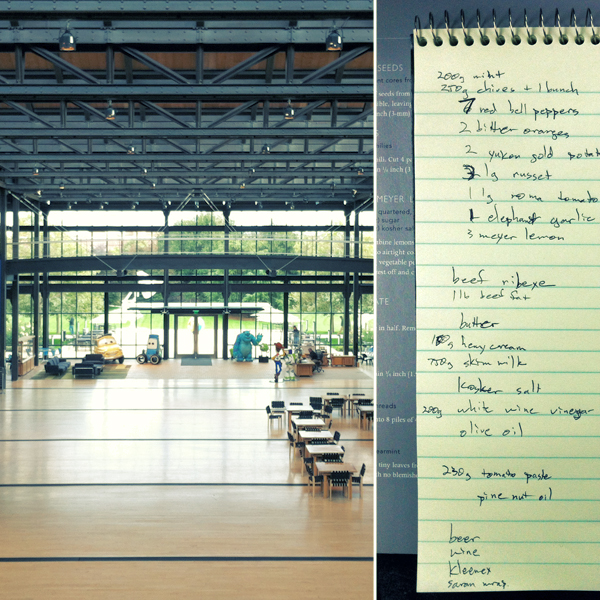 SEEDS
seeds from
ble, leaving
nch (3-mm)
ili. Cut 4 p
MEYER L
quartered,
sugar
kosher sal
bine lemons
o airtight co
vegetable p
ost off and c
in half. Rem
reads
to 8 piles of
tiny leaves f
h no blemishe
200g mint
250g chives + 1 bunch
7 red bell peppers
2 bitter oranges
2 yukon gold potat
3 lg russet
1 lg roma tomato
1 elephant garlic
3 meyer lemon
beef ribeye
1 lb beef fat
butter
heavy cream
750g skim milk
kosher salt
200g white wine vinegar
olive oil
230g tomato paste
pine nut oil
beer
wine
kleenex
saran wrap